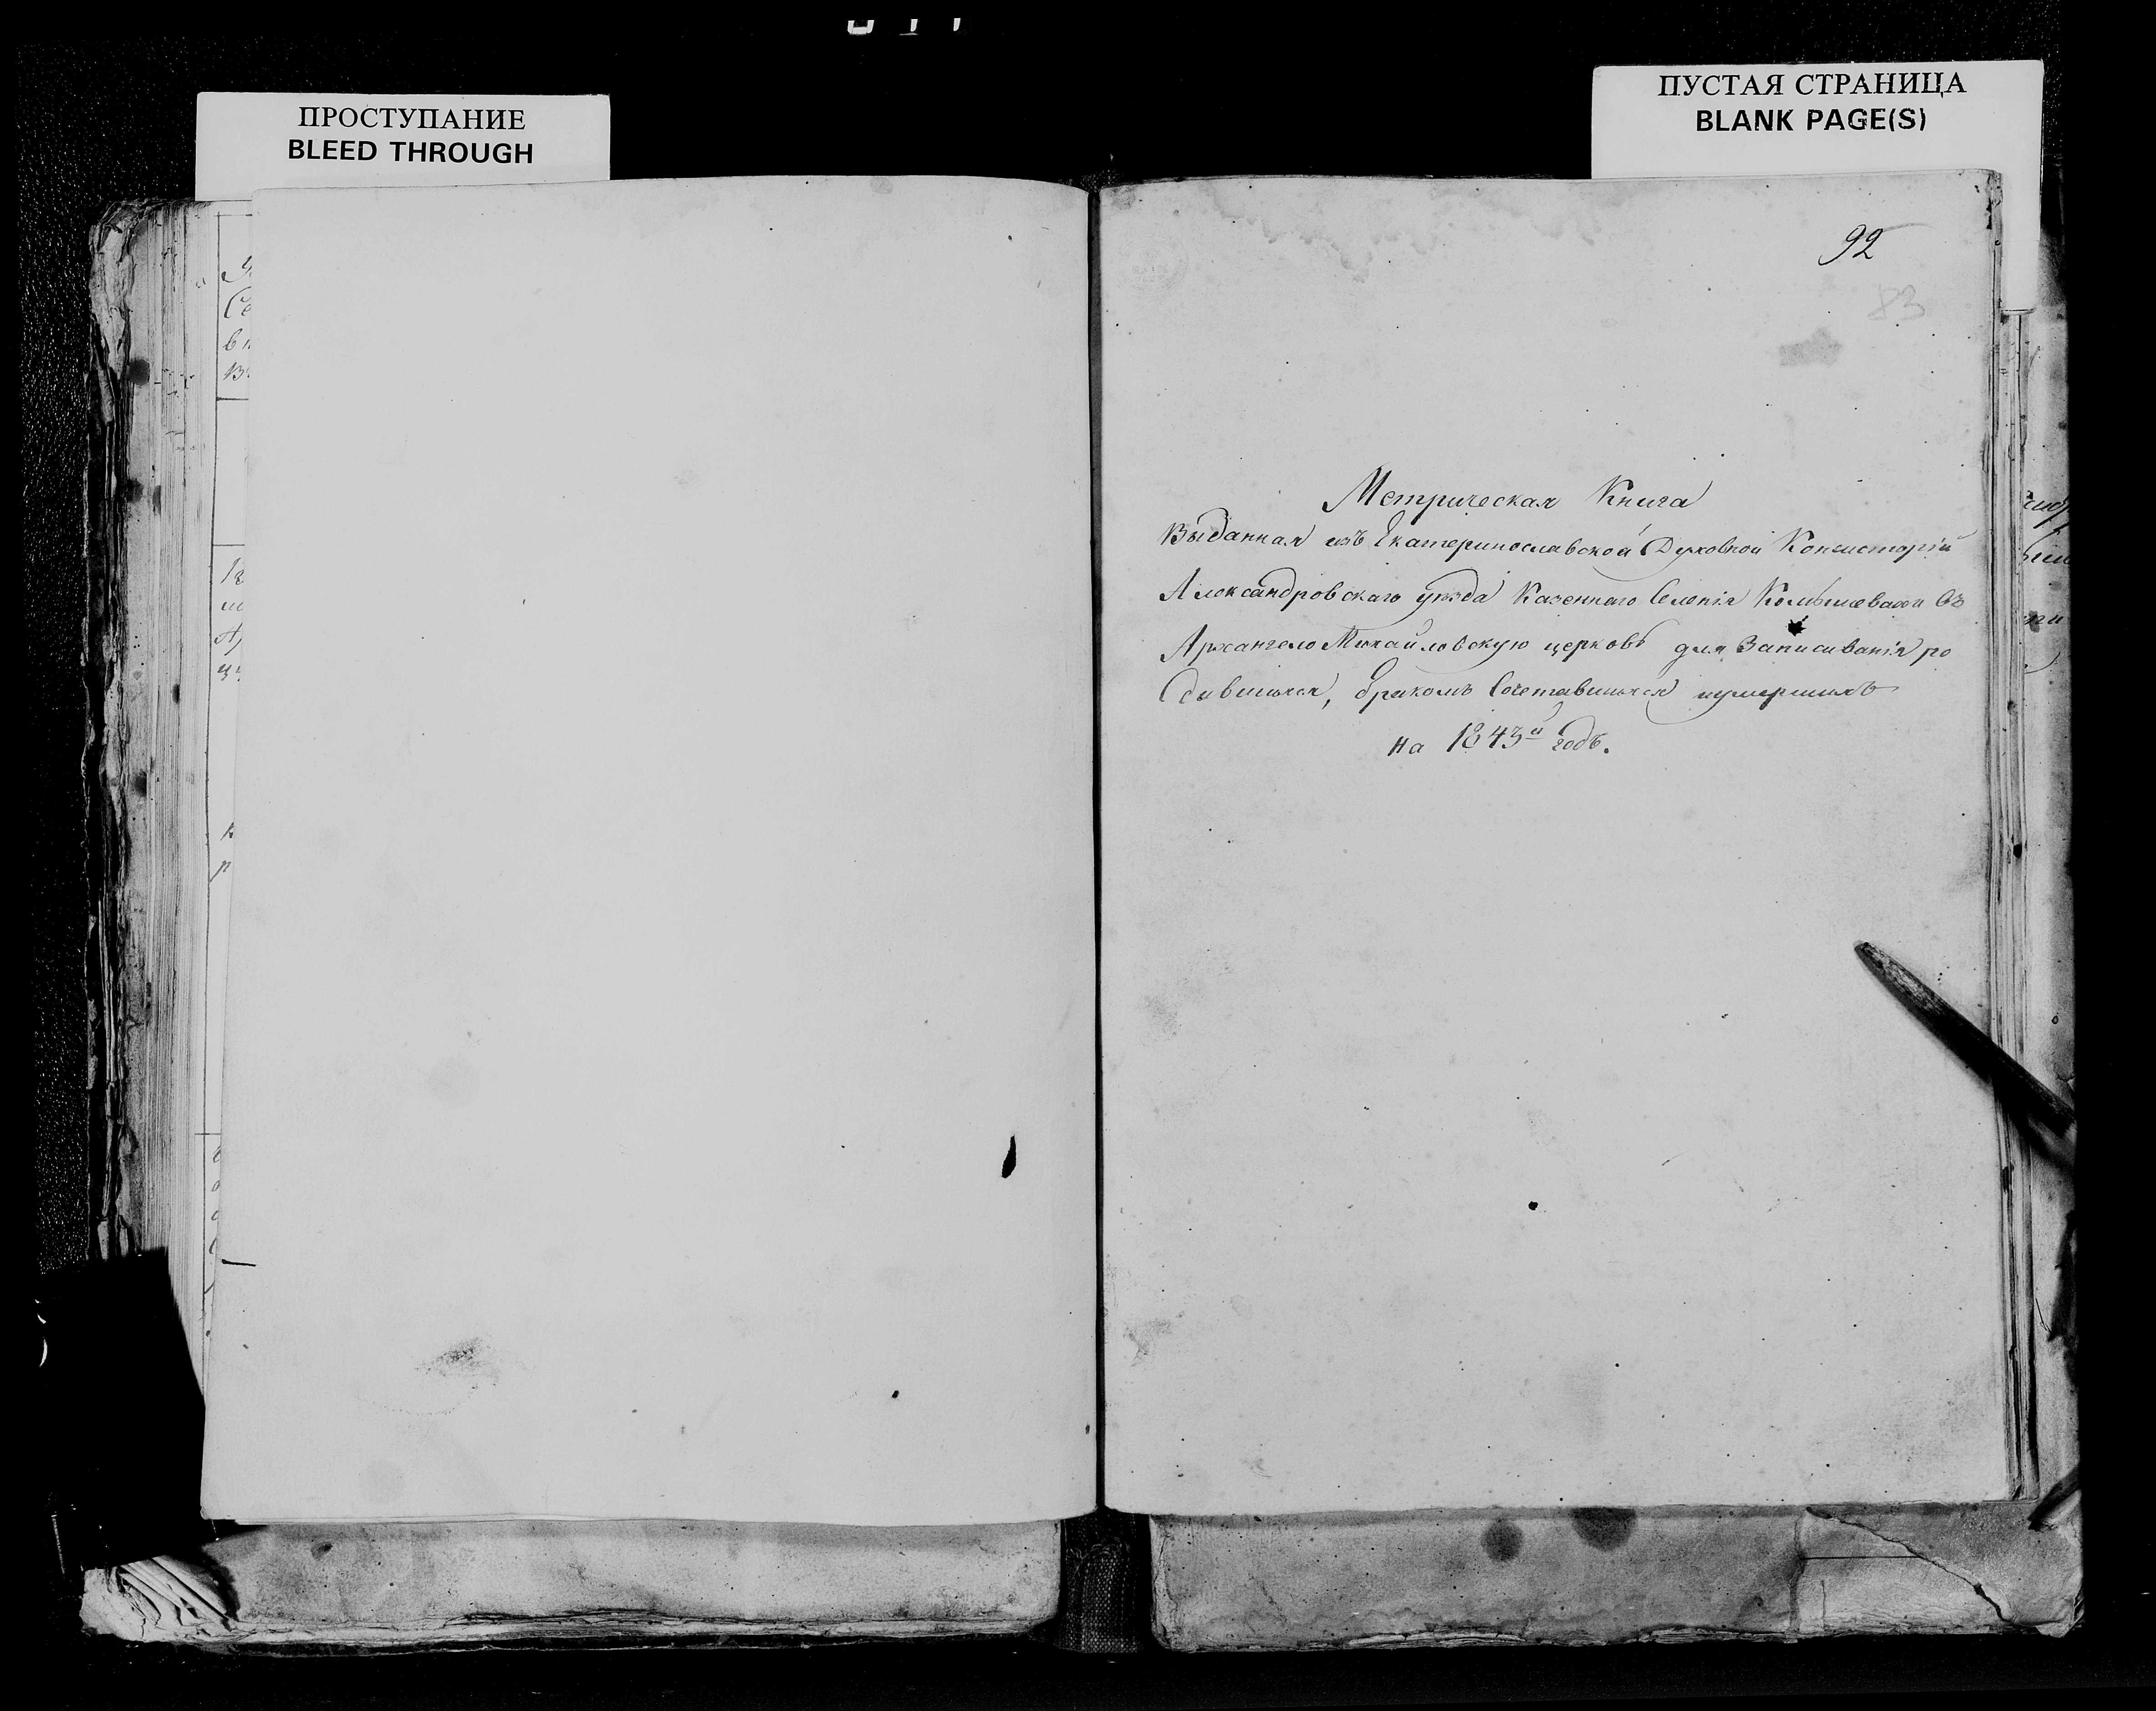 ПРОСТУПАНИЕ
BLEED THROUGH
ПУСТАЯ СТРАНИЦА
BLANK PAGE(S)
92
83
Метрическая Книга
Выданная изъ Екатеринославской Духовной Консисторіи
Александровскаго уѣзда Казеннаго Селенія Комышевахи въ
Архангело Михайловскую церковь для Записыванія ро
дившихся, бракомъ Сочетавшихся и умершихъ
на 1843й годъ.